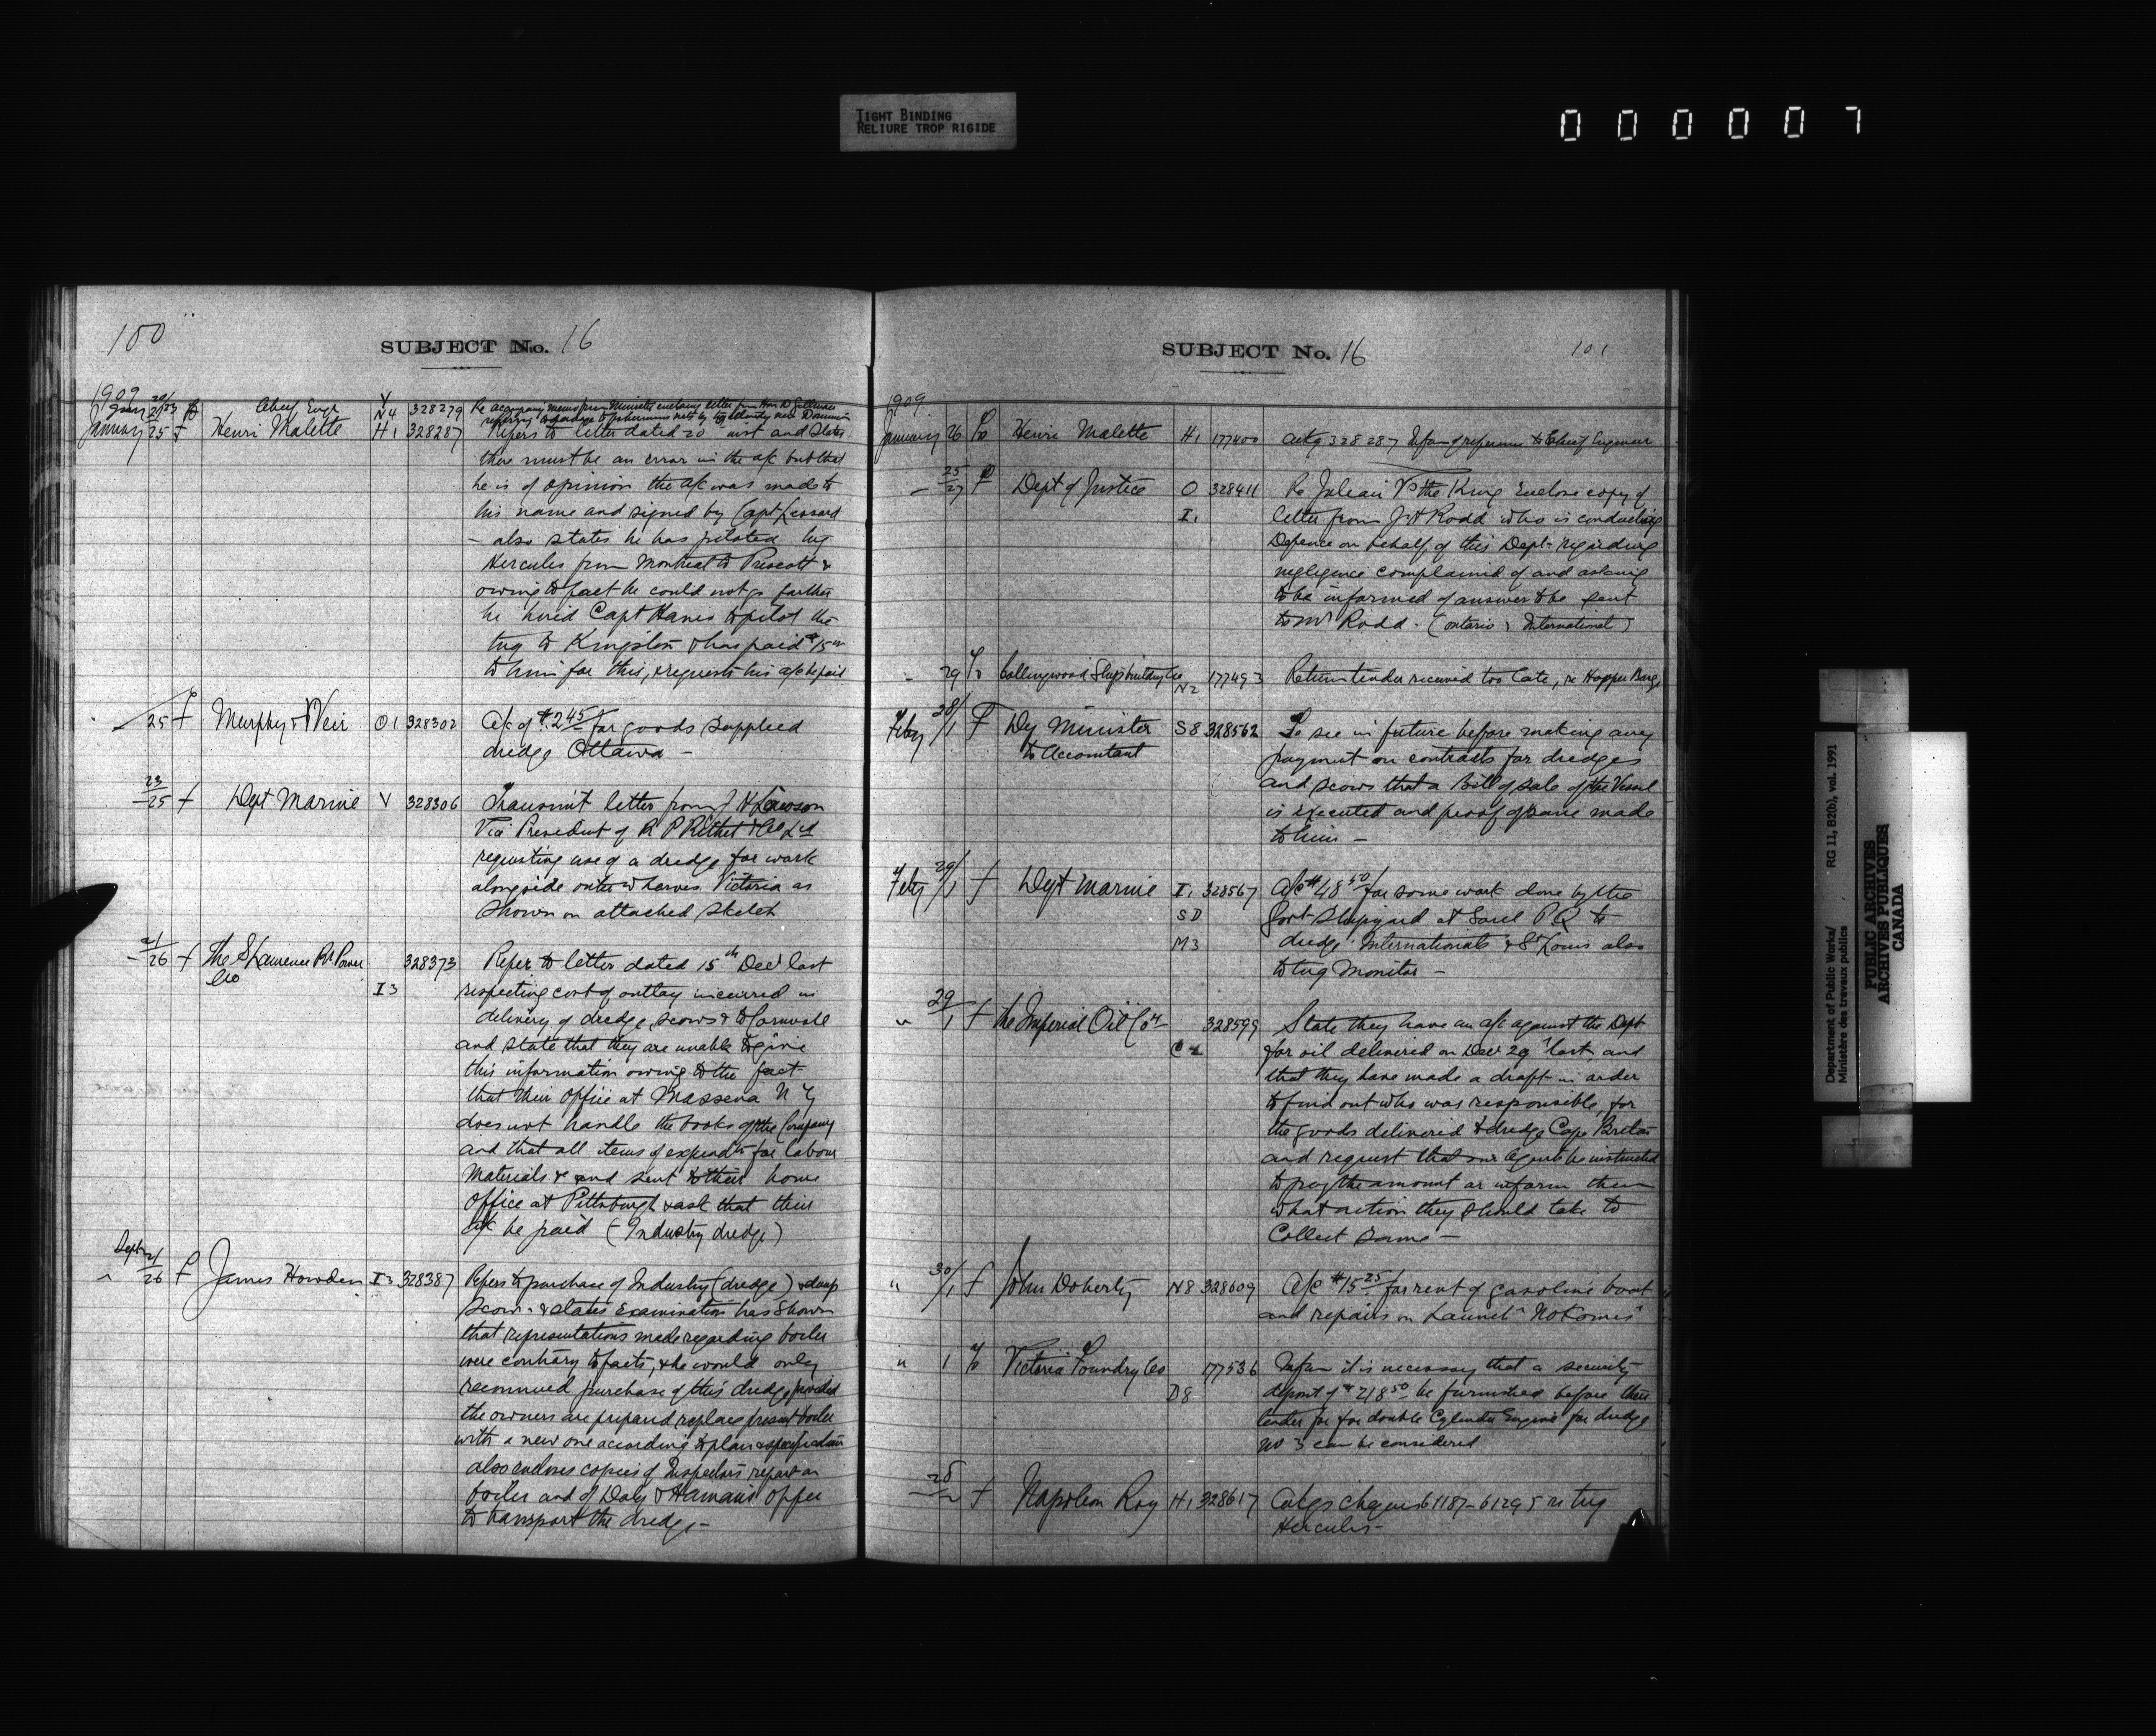 TIGHT BINDING
RELIURE TROP RIGIDE
000007
100
SUBJECT No. 16
1909
Chief Engr V N4 328279 Re accompany memo from Minister enclosing letter from Hon
January 25 f Henri Malette H1 328287 Refers to letter dated 20 inst and states
there must be an error in the a/c but that
he is of opinion the a/c was made to
his name and signed by Capt Lessard
– also states he has piloted tug
Hercules from Montreal to Prescott &
owing to fact he could not go farther
he hired Capt Hanes to pilot the
tug to Kingston & has paid $15
to him for this, & requests his a/c be paid
25 f Murphy & Weir O1 328302 A/c of $2.45 for goods supplied
dredge Ottawa –
23/25 f Dept Marine V 328306 Transmit letter from J H Lawson
Vice President of R P Rithet & Co Ltd
requesting use of a dredge for work
alongside outer wharves Victoria as
shown on attached sketch
21/26 f The St Lawrence Rr Power 328373 Refer to letter dated 15th Decr last
Co I3 respecting cost of outlay incurred in
delivery of dredge, scows & to Cornwall
and state that they are unable to give
this information owing to the fact
that their office at Massena N Y
does not handle the books of the Company
and that all items of expendt for labour
materials & and sent to their home
office at Pittsburgh & ask that their
a/c be paid (Industry dredge)
26 f James Howden I3 328387 Refers to purchase of Industry (dredge) & dump
scow – & states examination has shown
that representations made regarding boiler
were contrary to facts, & he would only
recommend purchase of this dredge provided
the owners are prepared replace present boiler
with a new one according to plan & specification
also encloses copies of Inspectors report on
boiler and of Daly & Hannan's offer
to transport the dredge –
SUBJECT No. 16
101
1909
January 26 To Henri Malette H1 177400 Ackg 328287 Infm of reference to Chief Engineer
25/27 f Dept of Justice O 328411 Re Julien Vs the King Enclose copy of
I1 letter from J H Rodd who is conducting
Defence on behalf of this Dept regarding
negligence complained of and asking
to be informed of answer to be sent
to Mr Rodd. (Ontario & International)
29 To Collingwood Shipbuilding Co N2 177493 Return tender received too late, re Hopper Barge
Feby 28/1 f Dy Minister S8 328562 To see in future before making any
to Accountant payment on contracts for dredges
and scows that a bill of sale of the Vessel
is executed and proof of same made
to him –
Feby 29/1 f Dept Marine I1 328567 A/c $48.50 for some work done by the
SD Govt Shipyard at Sorel P Q to
M3 dredge Internationals & St Louis also
to tug Monitor –
" 29/1 f The Imperial Oil Coy 328599 State they have an a/c against the Dept
for oil delivered on Decr 29 last and
that they have made a draft in order
to find out who was responsible, for
the goods delivered to dredge Cape Breton
and request that our Agents be instructed
to pay the amount or inform them
what action they should take to
collect same –
" 30/1 f John Doherty N8 328609 A/c $15.25 for rent of gasoline boat
and repairs on Launch "Nokomis"
" 1 To Victoria Foundry Co 177536 Infm it is necessary that a security
D8 deposit of $218.50 be furnished before their
tender for for double Cylinder Engine for dredge
No 3 can be considered
f Napoleon Roy H1 328617 Ackgs cheques 61187–61295 re tug
Hercules –
Department of Public Works/
Ministère des travaux publics
RG 11, B2(b), vol. 1991
PUBLIC ARCHIVES
ARCHIVES PUBLIQUES
CANADA